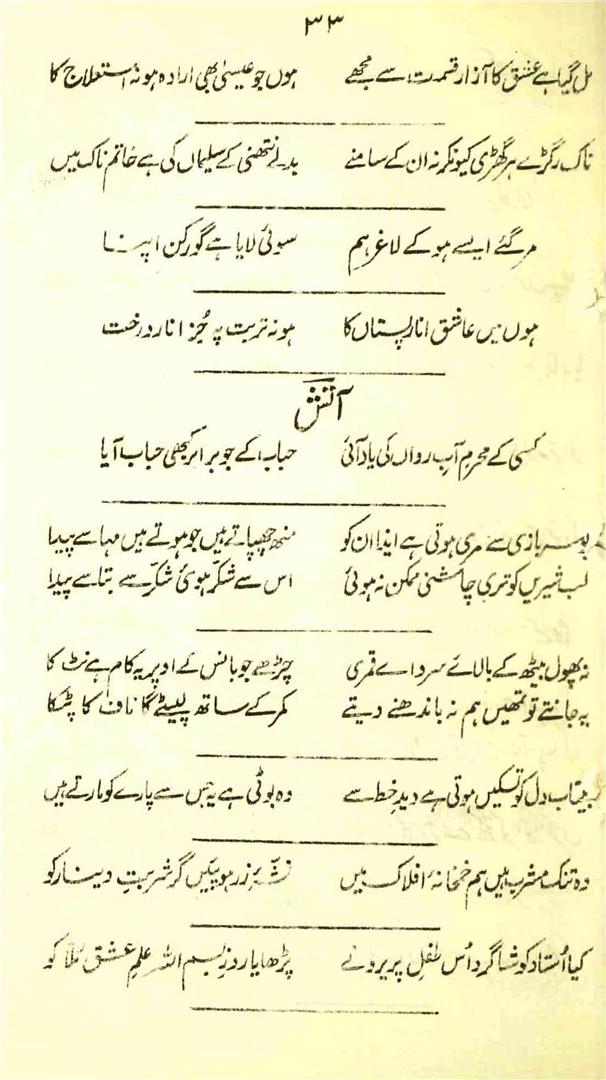 ۳۳
مل گیا ہے عشق کا آزار قسمت سے مجھے ہوں جو عیسیٰ بھی ارادہ ہو نہ استعلاج کا
ناک رگڑے ہر گھڑی کیونکر نہ ان کے سامنے بدلے نتھنی کے سلیماں کی ہے خاتم ناک میں
مر گئے ایسے ہو کے لاغر ہم سوئی لایا ہے گورکن اپنا
ہوں میں عاشق انار پستاں کا ہو نہ تربت پہ جُز انار درخت
آتش
کسی کے محرم آبِ رواں کی یاد آئی حباب کے جو برابر کبھی حباب آیا
بوسہ بازی سے مری ہوتی ہے ایذا ان کو منھ چھپاتے ہیں جو ہوتے ہیں مہاسے پیدا
لب شیریں کو تری چاشنی ممکن نہ ہوئی اس سے شکّر ہوئی شکّر سے بتاسے پیدا
نہ پھول بیٹھ کے بالائے سرو اے قمری چڑھے جو بانس کے اوپر یہ کام ہے نٹ کا
یہ جانتے تو تمھیں ہم نہ باندھنے دیتے کمر کے ساتھ لپیٹے گا ناف کا پٹکا
بیتاب دل کو تسکیں ہوتی ہے دیدِ خط سے وہ بوٹی ہے یہ جس سے پارے کو مارتے ہیں
وہ تنک مشرب ہیں ہم خمخانۂ افلاک میں نشّہ زر ہو پئیں گر شربتِ دینار کو
کیا اُستاد کو شاگرد اُس طفلِ پریرو نے پڑھایا روزِ بسم اللہ علمِ عشق مُلّا کو